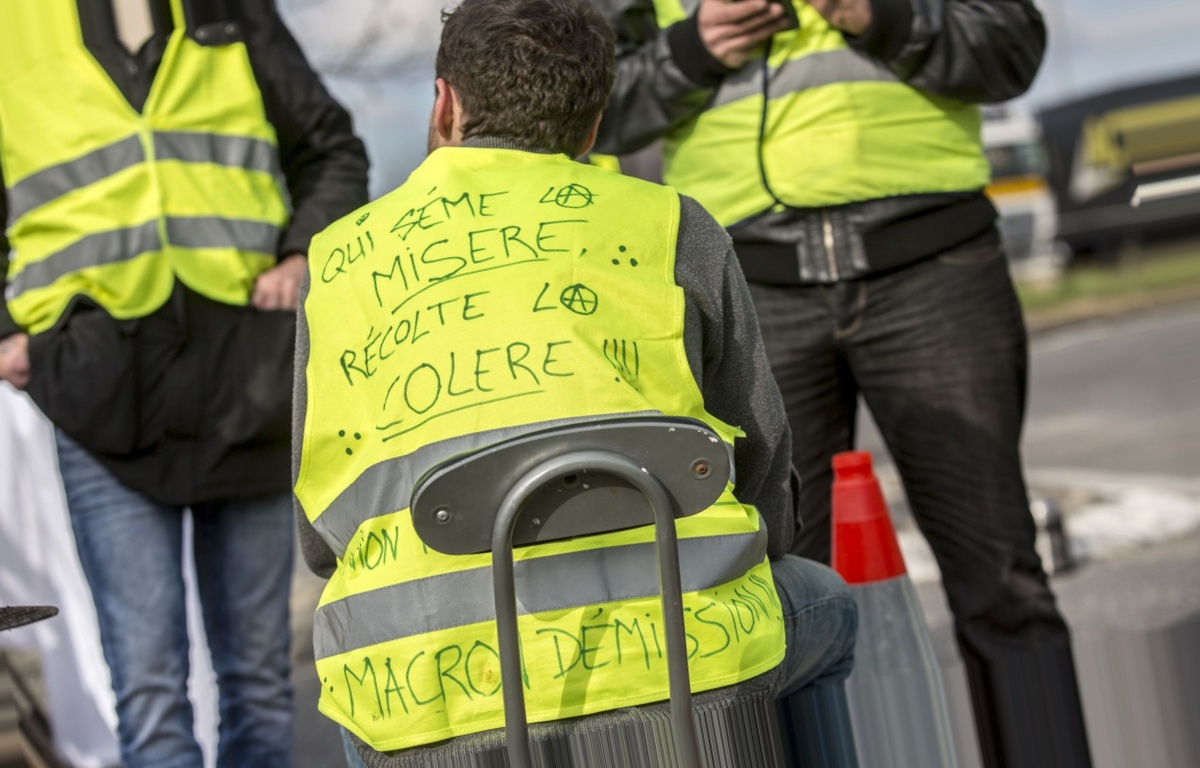 QUI SÉME LA
MISERE,
RÉCOLTE LA
COLERE !!!!
MACRON DÉMISSION!!